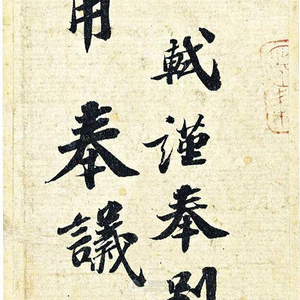 軾謹奉別
用奉議